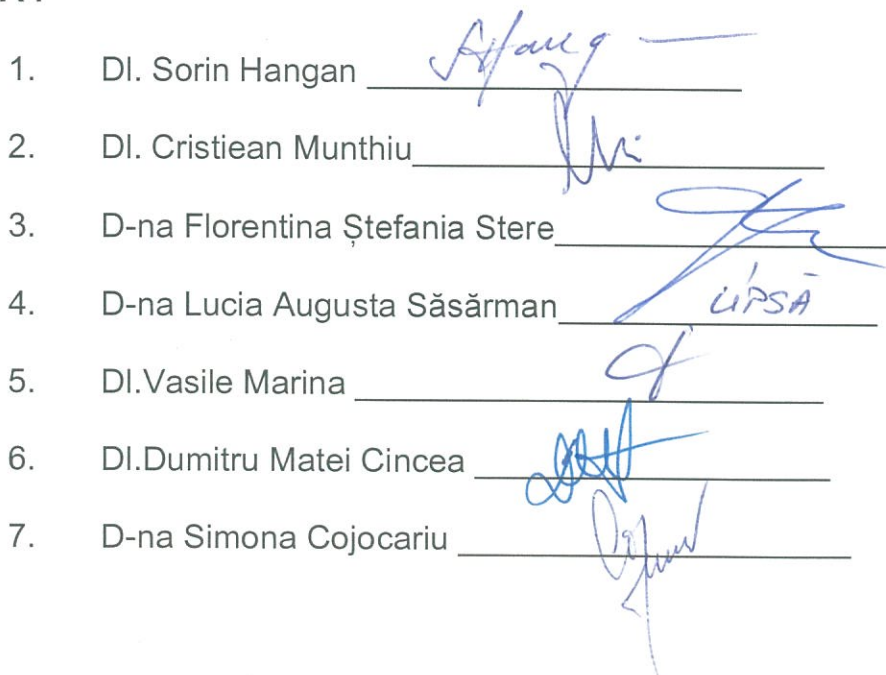 1. Dl. Sorin Hangan
2. Dl. Cristiean Munthiu
3. D-na Florentina Ștefania Stere
4. D-na Lucia Augusta Săsărman LIPSĂ
5. Dl.Vasile Marina
6. Dl.Dumitru Matei Cincea
7. D-na Simona Cojocariu